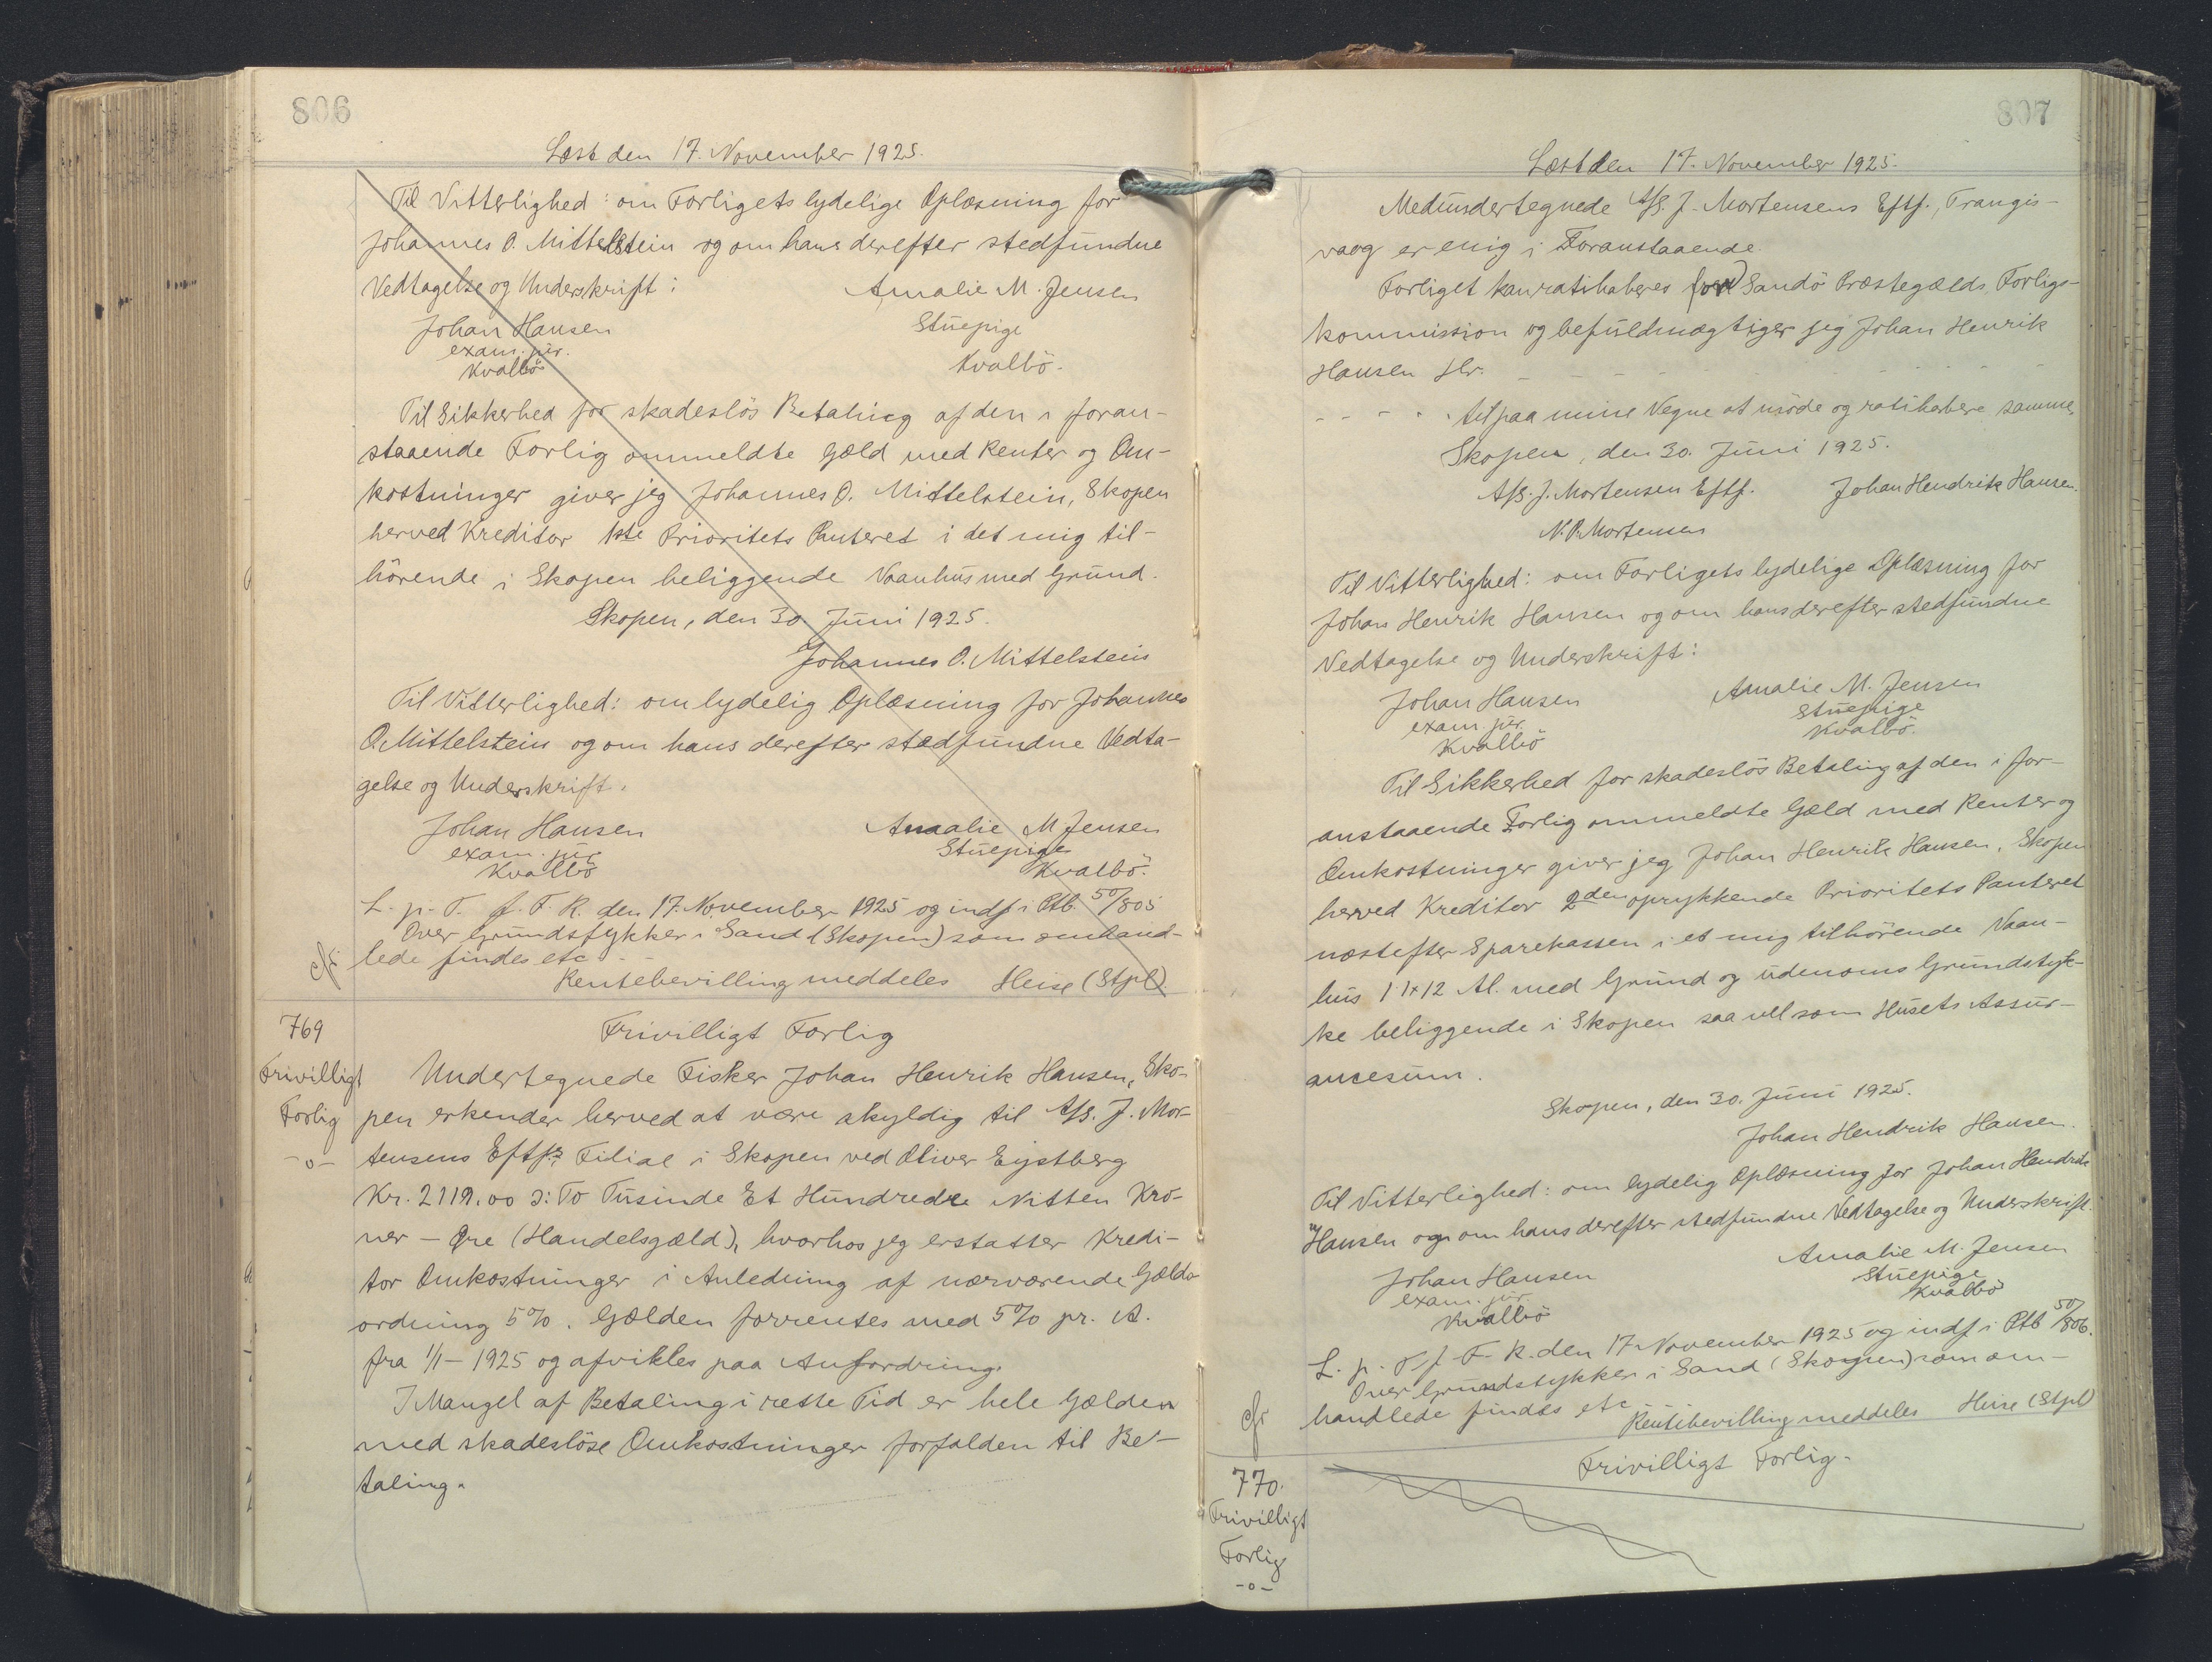 806
Læst den 17. November 1925.
Til Vitterlighed: om Forligets lydelige Oplæsning for
Johannes O. Mittelstein og om hans derefter stedfundne
Vedtagelse og Underskrift:
Amalie M. Jensen
Johan Hansen
Stuepige
exam. jur.
Kvalbö
Kvalbö.
Til Sikkerhed for skadeslös Betaling af den i foran-
staaende Forlig ommeldte Gæld med Renter og Om-
kostninger giver jeg Johannes O. Mittelstein, Skopen
herved Kreditor 1ste Prioritets Panteret i det mig til-
hörende i Skopen beliggende Vaanhus med Grund.
Skopen, den 30. Juni 1925.
Johannes O. Mittelstein
Til Vitterlighed: om lydelig Oplæsning for Johannes
O. Mittelstein og om hans derefter stedfundne Vedta-
gelse og Underskrift.
Johan Hansen
Amalie M. Jensen
exam. jur.
Stuepige
Kvalbö
Kvalbö.
L. p. T. f. F. R. den 17. November 1925 og indf i Ptb. 50/805
Over Grundstykker i Sand (Skopen) som omhand-
cfr. lede findes etc - -
Rentebevilling meddeles Heise (Stpl).
769
Frivilligt
Forlig
-o-
Frivilligt Forlig
Undertegnede Fisker Johan Henrik Hansen, Sko-
pen erkender herved at være skyldig til A/S. J. Mor-
tensens Eftf.s Filial i Skopen ved Oliver Eystberg
Kr. 2119.00 ɔ: To Tusinde Et Hundrede Nitten Kro-
ner - Øre (Handelsgæld), hvorhos jeg erstatter Kredi-
tor Omkostninger i Anledning af nærværende Gælds-
ordning 5%. Gælden forrentes med 5% pr. A.
fra 1/1 - 1925 og afvikles paa Anfordring.
I Mangel af Betaling i rette Tid er hele Gælden
med skadeslöse Omkostninger forfalden til Be-
taling.
807
Læst den 17. November 1925.
Medundertegnede A/S. J. Mortensens Eftf., Trangis-
vaag er enig i Foranstaaende.
Forliget kan ratihaberes for Sandö Præstegælds Forligs-
kommission og befuldmægtiger jeg Johan Henrik
Hansen Hr. - - - - - - - - - -
- - - - - til paa mine Vegne at möde og ratihabere samme.
Skopen, den 30. Juni 1925.
A/S. J. Mortensen Eftf. Johan Hendrik Hansen.
N. P. Mortensen
Til Vitterlighed: om Forligets lydelige Oplæsning for
Johan Henrik Hansen og om hans derefter stedfundne
Vedtagelse og Underskrift:
Johan Hansen
Amalie M. Jensen
exam. jur.
Stuepige
Kvalbö
Kvalbö.
Til Sikkerhed for skadeslös Betaling af den i for-
anstaaende Forlig ommeldte Gæld med Renter og
Omkostninger giver jeg Johan Henrik Hansen, Skopen
herved Kreditor 2den oprykkende Prioritets Panteret
næstefter Sparekassen i et mig tilhörende Vaan-
hus 11x12 Al. med Grund og udenoms Grundstyk-
ke beliggende i Skopen saavelsom Husets Assur-
ancesum.
Skopen, den 30. Juni 1925.
Johan Hendrik Hansen.
Til Vitterlighed: om lydelig Oplæsning for Johan Hendrik
Hansen og om hans derefter stedfundne Vedtagelse og Underskrift.
Johan Hansen
Amalie M. Jensen
exam. jur.
Stuepige
Kvalbö
Kvalbö
L. p. T. f. F. R. den 17 November 1925 og indf i Ptb 50/806.
Over Grundstykker i Sand (Skopen) som om-
cfr handlede findes etc
Rentebevilling meddeles Heise (Stpl)
770.
Frivilligt
Forlig
-o-
Frivilligt Forlig.